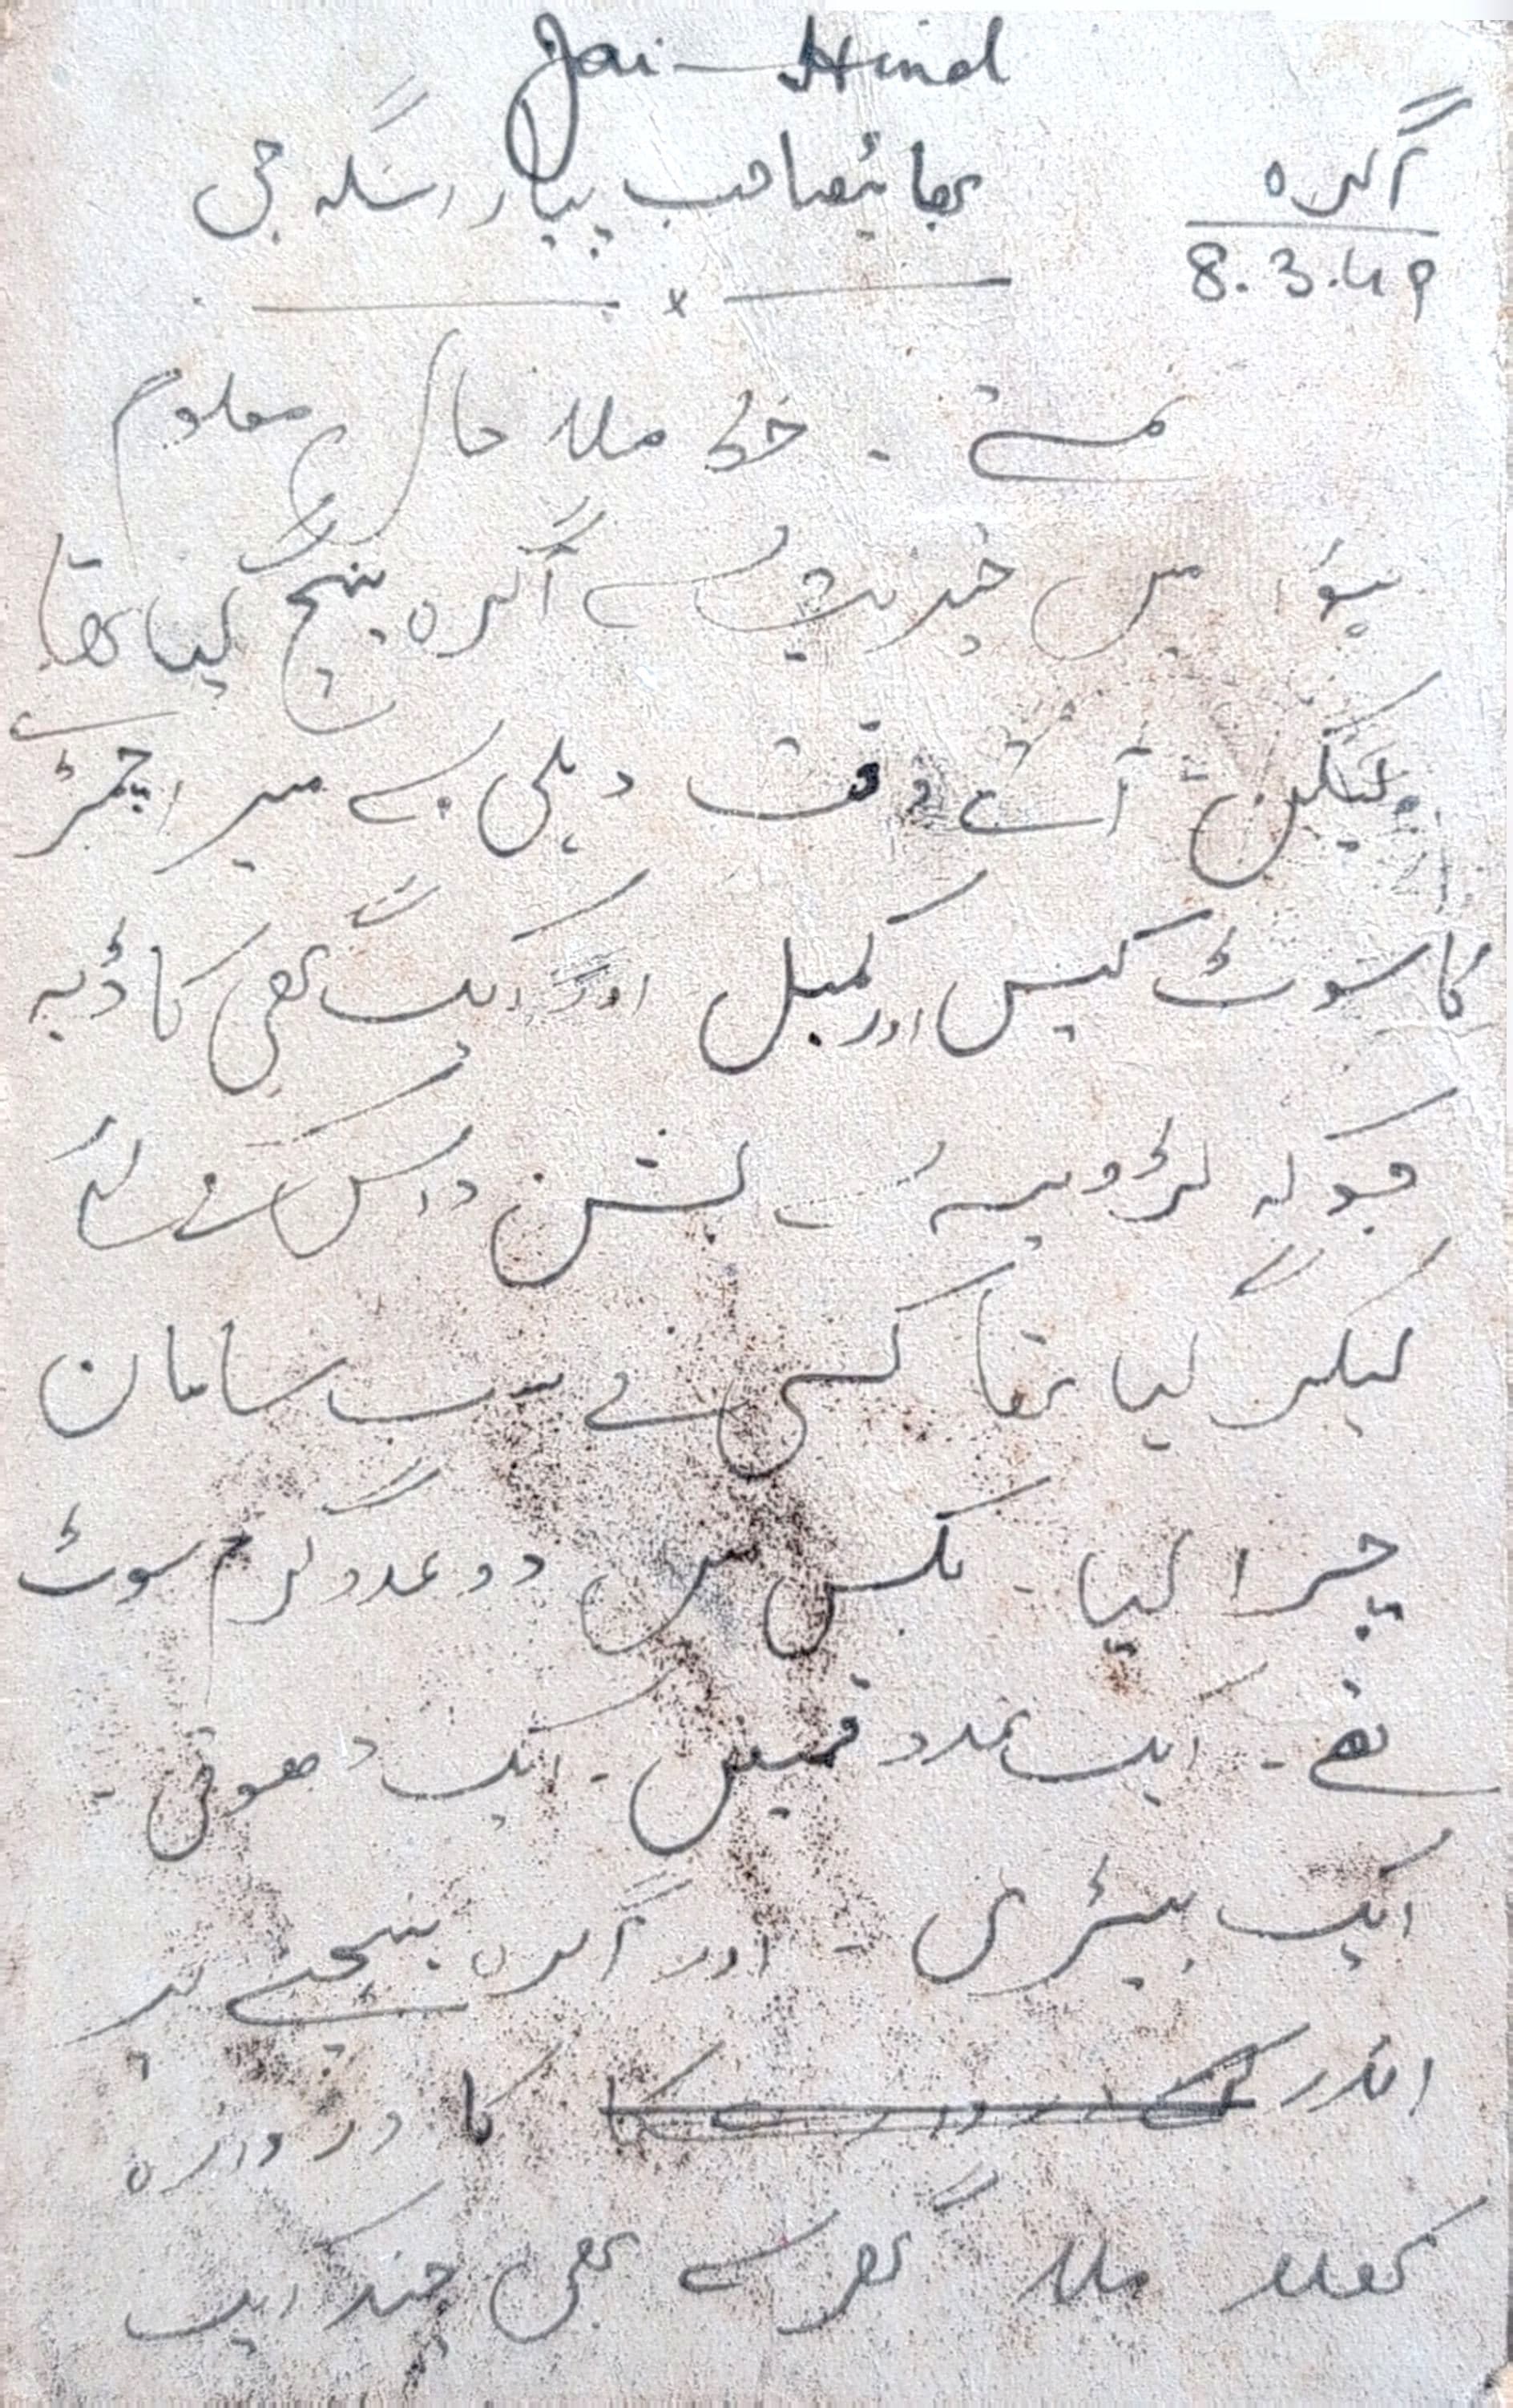 Jai-Hind
آگرہ
8.3.49
بھائیصاحب پیارسنگھ جی
نمستے ۔ خط ملا حال معلوم
ہوا میں خیریت سے آگرہ پہنچ گیا تھا
لیکن آتے وقت دہلی سے میرا چمڑے
کا سوٹ کیس اور کمبل اور ایک گھی کا ڈبہ
جوکہ سے واپس
لیکر گیا تھا کسی نے سب سامان
چرا لیا ۔ بکس میں دو عدد گرم سوٹ
تھے ۔ ایک عدد قمیص ۔ ایک دھوتی ۔
ایک بیٹری ۔ اور آگرہ پہنچنے پر
اندر کا دروازہ
کھلا ملا گھر سے بھی چند ایک